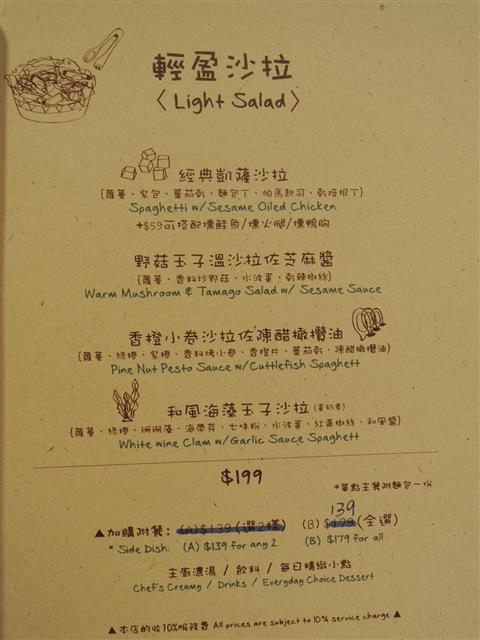 輕盈沙拉
〈Light Salad〉
經典凱薩沙拉
{蘿蔓、紫包、蕃茄乾、麵包丁、帕馬起司、乾培根丁}
Spaghetti w/Sesame Oiled Chicken
+$59可搭配燻鮭魚/燻火腿/燻鴨胸
野菇玉子溫沙拉佐芝麻醬
{蘿蔓、香料炒野菇、水波蛋、乾辣椒絲}
Warm Mushroom & Tamago Salad w/ Sesame Sauce
香橙小卷沙拉佐陳醋橄欖油
{蘿蔓、綠捲、紫捲、香料烤小卷、香橙片、蕃茄乾、陳醋橄欖油}
Pine Nut Pesto Sauce w/Cuttlefish Spaghett
和風海藻玉子沙拉(蛋奶素)
{蘿蔓、綠捲、珊瑚藻、海帶芽、七味粉、水波蛋、紅黃椒絲、和風醬}
White wine Clam w/Garlic Sauce Spaghett
$199
*單點主餐附麵包一份
139
▲加購附餐: (A)$139(選2樣) (B) $179(全選)
* Side Dish: (A) $139 for any 2 (B) $179 for all
主廚濃湯 / 飲料 / 每日精緻小點
Chef's Creamy / Drinks / Everyday Choice Dessert
▲本店酌收10%服務費 All prices are subject to 10% service charge▲